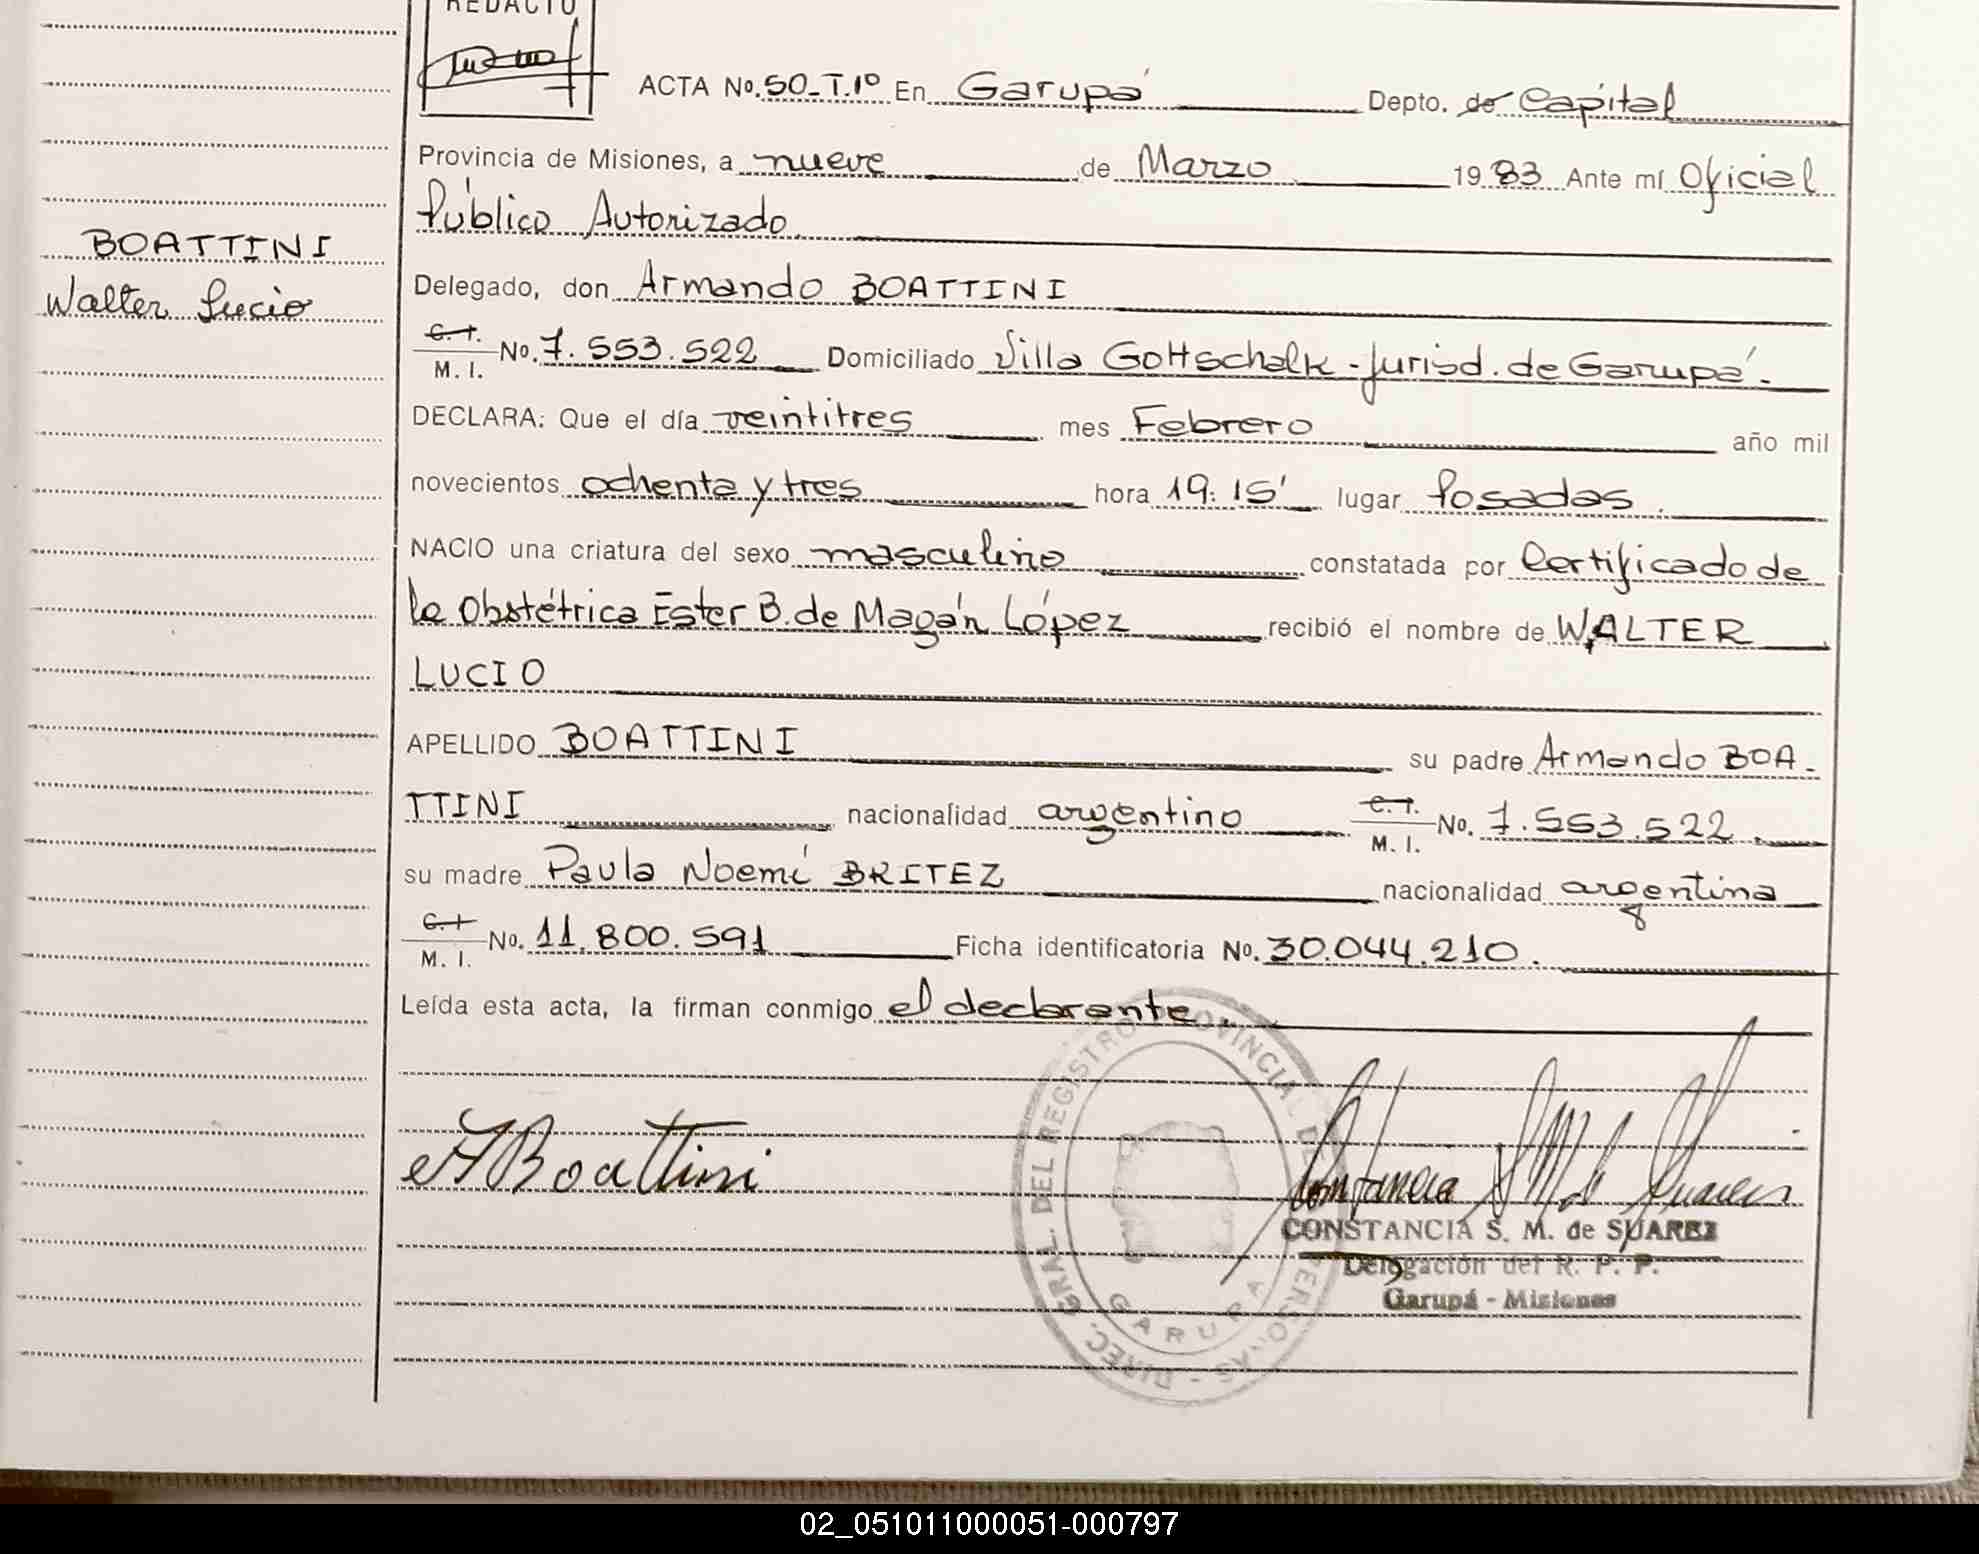 REDACTO
ACTA No. 50_T.1º En Garupá Depto. de Capital
Provincia de Misiones, a nueve de Marzo 1983 Ante mí Oficial
Público Autorizado.
BOATTINI
Walter Lucio
Delegado, don Armando BOATTINI
C.I. M.I. No. 7.553.522 Domiciliado Villa Gottschalk - Jurisd. de Garupá.
DECLARA: Que el día veintitres mes Febrero año mil
novecientos ochenta y tres hora 19:15' lugar Posadas.
NACIO una criatura del sexo masculino constatada por Certificado de
la Obstétrica Ester B. de Magán López recibió el nombre de WALTER
LUCIO
APELLIDO BOATTINI su padre Armando BOA-
TTINI nacionalidad argentino C.I. M.I. No. 7.553.522
su madre Paula Noemí BRITEZ nacionalidad argentina
C.I. M.I. No. 11.800.591 Ficha identificatoria No. 30.044.210.
Leída esta acta, la firman conmigo el declarante.
DIREC. GRAL. DEL REGISTRO PROVINCIAL DE PERSONAS -
GARUPA
A Boattini
Constancia S M de Suarez
CONSTANCIA S. M. de SUAREZ
Delegación del R. P. P.
Garupá - Misiones
02_051011000051-000797